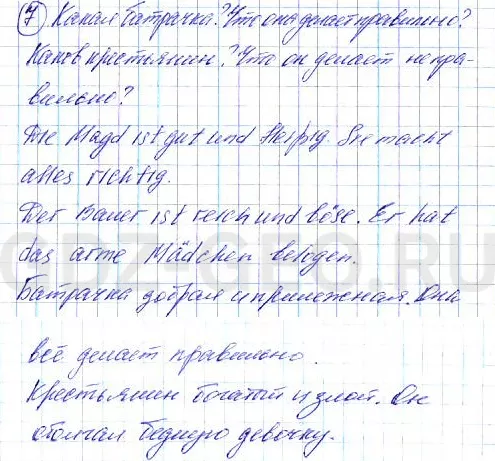 7 Какая батрачка? Что она делает правильно?
Каков крестьянин? Что он делает непра-
вильно?
Die Magd ist gut und fleißig. Sie macht
alles richtig.
Der Bauer ist reich und böse. Er hat
das arme Mädchen belogen.
Батрачка добрая и прилежная. Она
всё делает правильно.
Крестьянин богатый и злой. Он
бедную девочку.